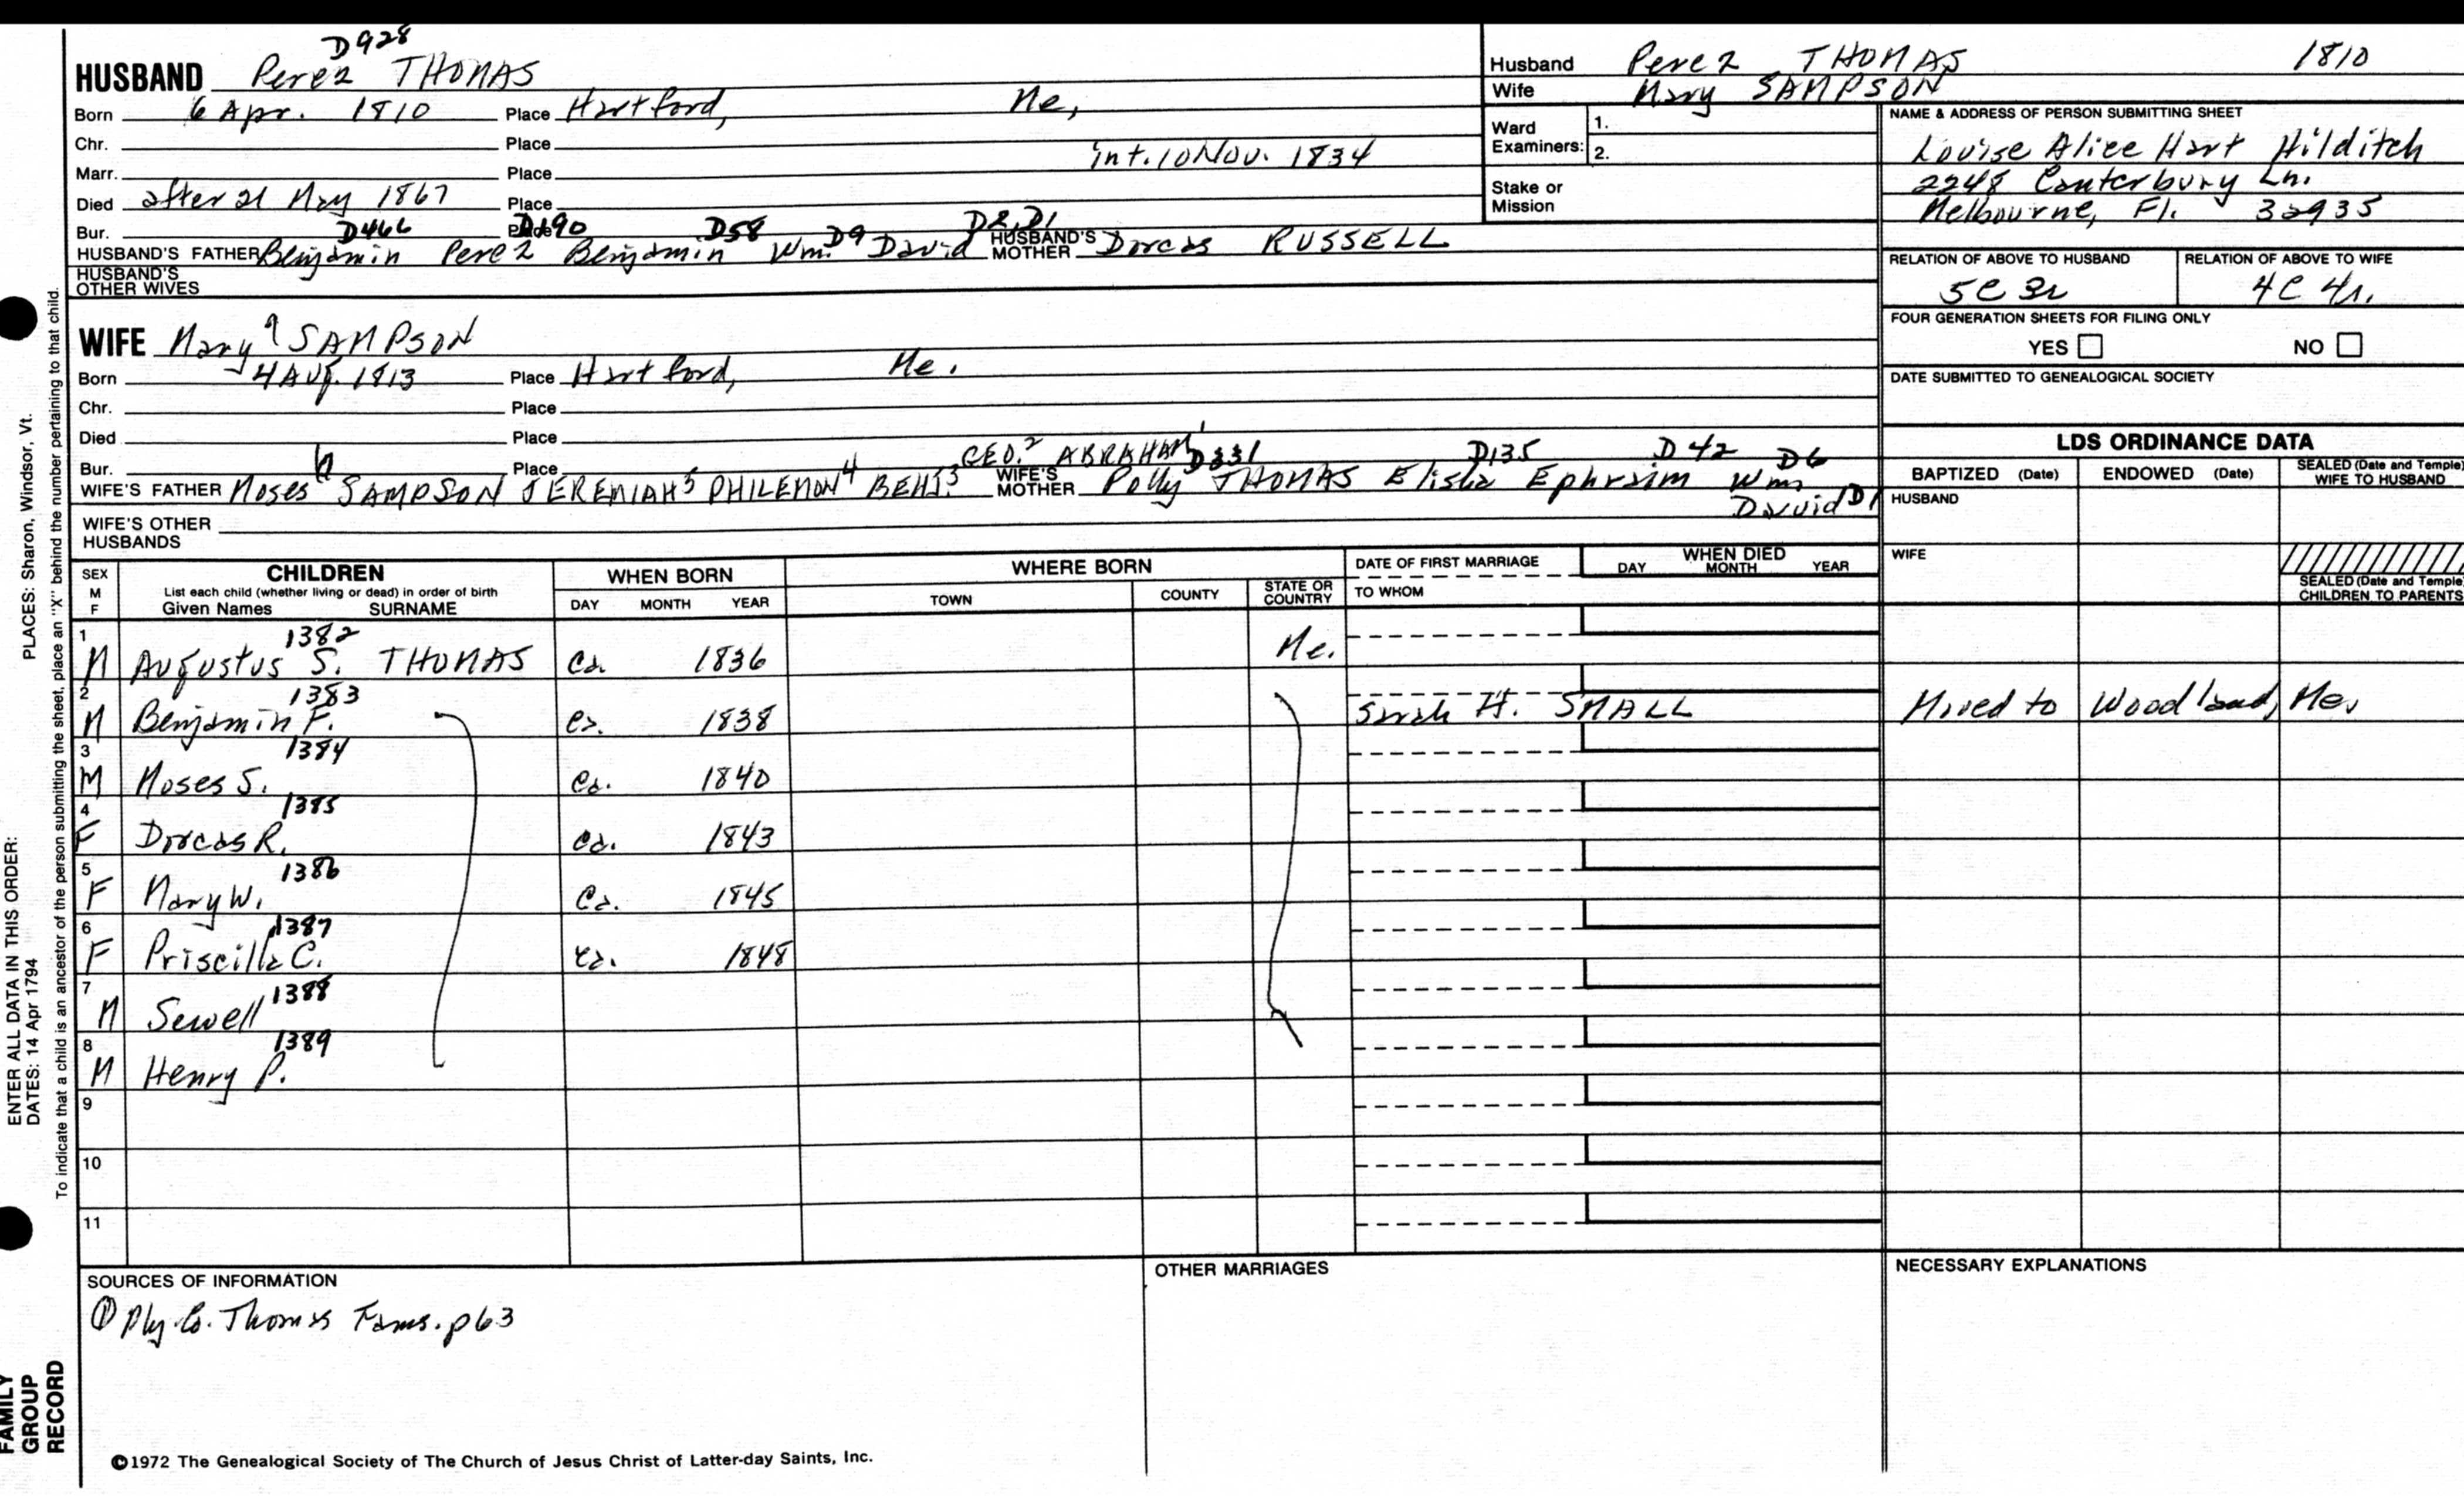 D928
HUSBAND Perez THOMAS
Born 6 Apr. 1810 Place Hartford, Me,
Chr. Place
Marr. Place int. 10 Nov. 1834
Died after 21 May 1867 Place
Bur. Place
D466 D190 D58 D9 D2, D1
HUSBAND'S FATHER Benjamin Perez Benjamin Wm. David HUSBAND'S MOTHER Dorcas RUSSELL
HUSBAND'S OTHER WIVES
WIFE Mary SAMPSON
Born 4 Aug. 1813 Place Hartford, Me.
Chr. Place
Died Place
Bur. Place
GEO.² ABRAHAM¹ D331 D135 D42 D6
WIFE'S FATHER Moses⁶ SAMPSON JEREMIAH⁵ PHILEMON⁴ BENJ.³ WIFE'S MOTHER Polly THOMAS Elisha Ephraim Wm
David D1
WIFE'S OTHER HUSBANDS
Husband Perez THOMAS 1810
Wife Mary SAMPSON
Ward Examiners: 1.
2.
Stake or Mission
NAME & ADDRESS OF PERSON SUBMITTING SHEET
Louise Alice Hart Hilditch
2248 Canterbury Ln.
Melbourne, Fl. 32935
RELATION OF ABOVE TO HUSBAND RELATION OF ABOVE TO WIFE
5C 3r 4C 4r.
FOUR GENERATION SHEETS FOR FILING ONLY
YES NO
DATE SUBMITTED TO GENEALOGICAL SOCIETY
LDS ORDINANCE DATA
BAPTIZED (Date) ENDOWED (Date) SEALED (Date and Temple) WIFE TO HUSBAND
HUSBAND
WIFE
SEALED (Date and Temple) CHILDREN TO PARENTS
SEX M F
CHILDREN
List each child (whether living or dead) in order of birth
Given Names SURNAME
WHEN BORN
DAY MONTH YEAR
WHERE BORN
TOWN COUNTY STATE OR COUNTRY
DATE OF FIRST MARRIAGE
TO WHOM
WHEN DIED
DAY MONTH YEAR
1 1382
M Augustus S. THOMAS Ca. 1836 Me.
2 1383
M Benjamin F. ca. 1838 Sarah H. SMALL Moved to Woodland, Me.
3 1384
M Moses S. ca. 1840
4 1385
F Dorcas R. ca. 1843
5 1386
F Mary W. ca. 1845
6 1387
F Priscilla C. ca. 1848
7 1388
M Sewell
8 1389
M Henry P.
9
10
11
SOURCES OF INFORMATION
① Ply. Co. Thomas Fams. p63
OTHER MARRIAGES
NECESSARY EXPLANATIONS
©1972 The Genealogical Society of The Church of Jesus Christ of Latter-day Saints, Inc.
ENTER ALL DATA IN THIS ORDER:
DATES: 14 Apr 1794
PLACES: Sharon, Windsor, Vt.
To indicate that a child is an ancestor of the person submitting the sheet, place an "X" behind the number pertaining to that child.
FAMILY
GROUP
RECORD